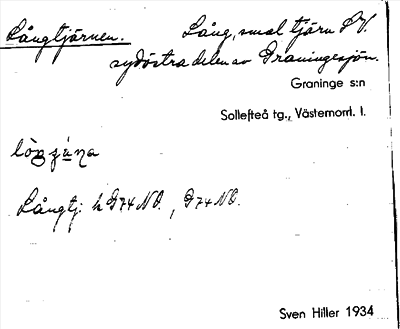 Långtjärnen. Lång, smal tjärn SV.
sydöstra delen av Graningesjön.
Graninge s:n
Sollefteå tg., Västernorrl. l.
Långtj: h D74 NO., D74 NO.
Sven Hiller 1934